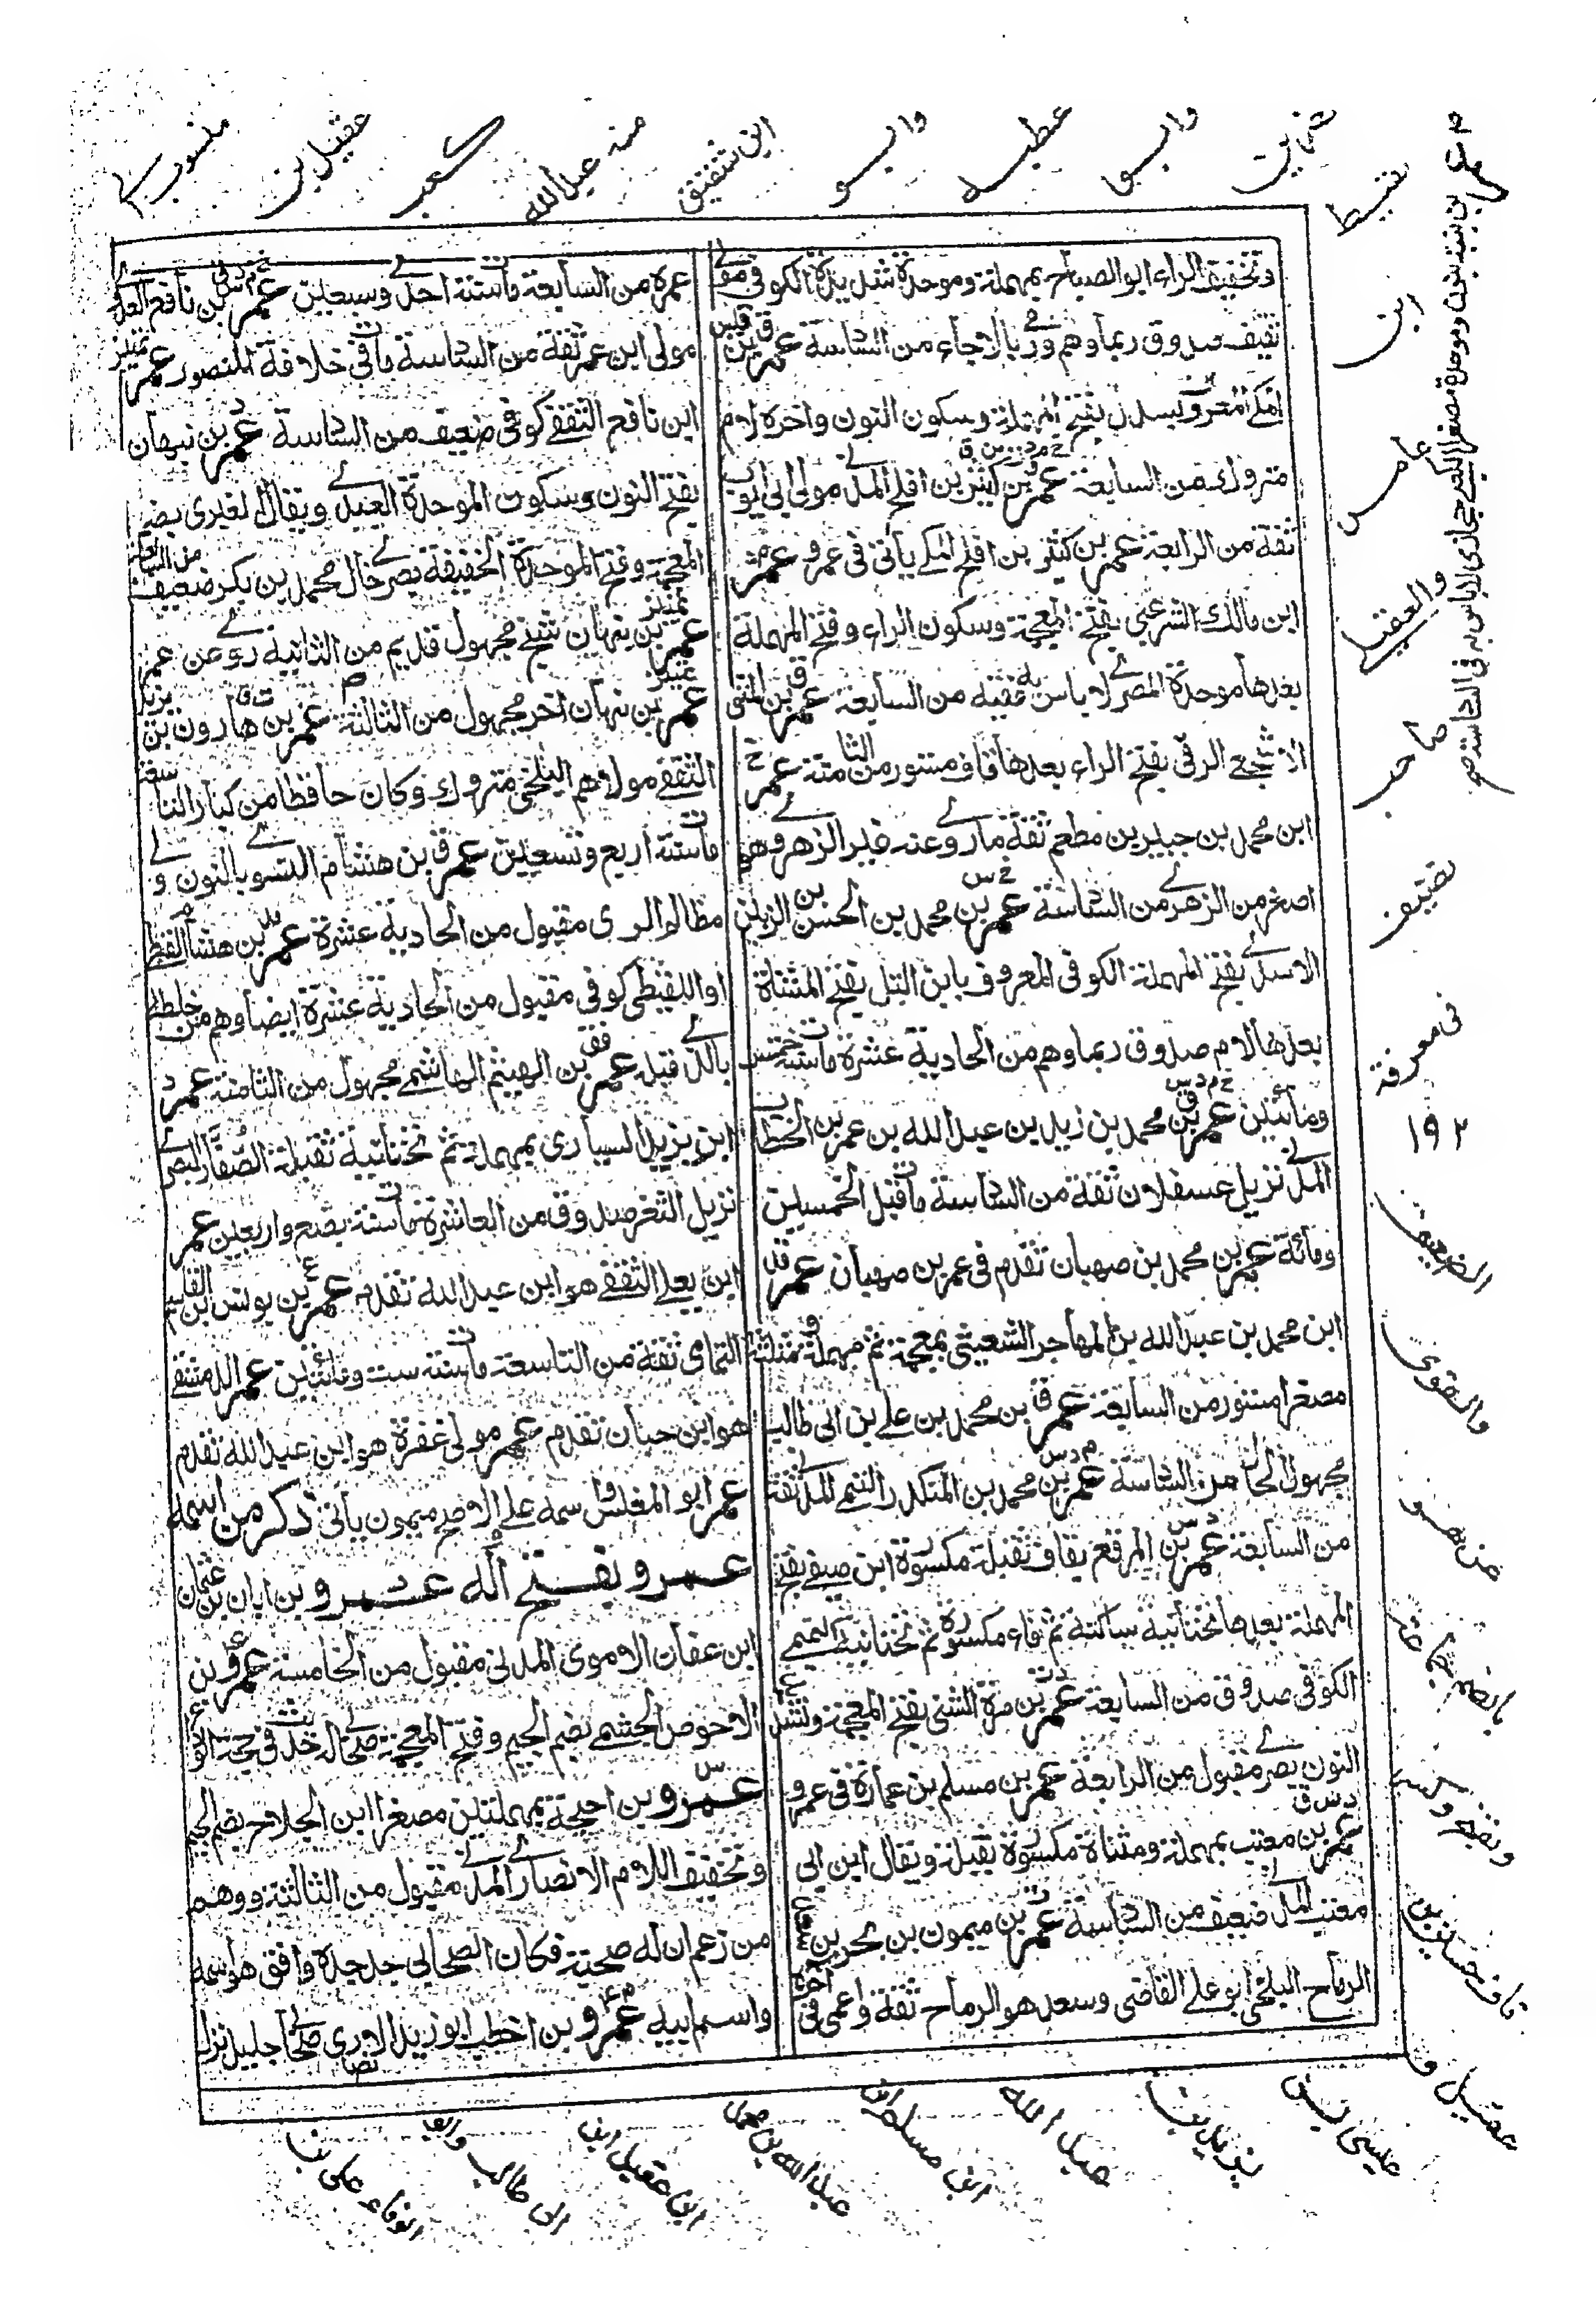 وتخفيف الراء ابو الصباح بمهملة وموحدة شديدة الكوفي مولى
ثقيف صدوق ربما وهم ورمي بالارجاء من السادسة عمر بن قيس
المكي المعروف بسندل بفتح المهملة وسكون النون واخره لام
متروك من السابعة عمر بن كثير بن افلح المدني مولى ابي ايوب
ثقة من الرابعة عمر بن كثير بن افلح المكي يأتي في عمرو عمر
ابن مالك الشرعبي بفتح المعجمة وسكون الراء وفتح المهملة
بعدها موحدة المصري لا باس به فقيه من السابعة عمر بن المثنى
الاشجعي الرقي بفتح الراء بعدها قاف مستور من الثامنة عمر
ابن محمد بن جبير بن مطعم ثقة ما روى عنه غير الزهري وهو
اصغر من الزهري من السادسة عمر بن محمد بن الحسن بن الزبير
الاسدي بفتح المهملة الكوفي المعروف بابن التل بفتح المثناة
بعدها لام صدوق ربما وهم من الحادية عشرة مات سنة خمسين
ومائتين عمر بن محمد بن زيد بن عبد الله بن عمر بن الخطاب
المدني نزيل عسقلان ثقة من السادسة مات قبل الخمسين
ومائة عمر بن محمد بن صهبان تقدم في عمر بن صهبان عمر
ابن محمد بن عبد الله بن المهاجر الشعيثي بمعجمة ثم مهملة ثم مثلثة
مصغرا مستور من السابعة عمر بن محمد بن علي بن ابي طالب
مجهول الحال من السادسة عمر بن محمد بن المنكدر التيمي المدني ثقة
من السابعة عمر بن المرقع بقاف ثقيلة مكسورة ابن صيفي بفتح
المهملة بعدها تحتانية ساكنة ثم فاء مكسورة ثم تحتانية التميمي
الكوفي صدوق من السابعة عمر بن مرة الشني بفتح المعجمة وتشديد
النون بصري مقبول من الرابعة عمر بن مسلم بن عمارة في عمرو
عمر بن معتب بمهملة ومثناة مكسورة ثقيلة ويقال ابن ابي
معتب المدني ضعيف من السادسة عمر بن ميمون بن بحر بن سعد
الرماح البلخي ابو علي القاضي وسعد هو الرماح ثقة واعمى في اخره
عمرة من السابعة مات سنة احدى وسبعين عمر بن نافع العدوي
مولى ابن عمر ثقة من السادسة مات في خلافة المنصور عمر
ابن نافع الثقفي كوفي ضعيف من السادسة عمر بن نبهان
بفتح النون وسكون الموحدة العبدي ويقال الغبري بضم
المعجمة وفتح الموحدة الخفيفة بصري خال محمد بن بكر ضعيف من السابعة
عمر بن نبهان شيخ مجهول قديم من الثانية روى عن عمر
عمر بن نبهان اخر مجهول من الثالثة عمر بن هارون بن يزيد
الثقفي مولاهم البلخي متروك وكان حافظا من كبار التاسعة
مات سنة اربع وتسعين عمر بن هشام النسوي بالنون و
مظالم الري مقبول من الحادية عشرة عمر بن هشام القبطي
او اللقيطي كوفي مقبول من الحادية عشرة ايضا وهم من خلطه
بالذي قبله عمر بن الهيثم الهاشمي مجهول من الثامنة عمر
ابن يزيد السياري بمهملة ثم تحتانية ثقيلة الصفار البصري
نزيل الثغر صدوق من العاشرة مات سنة بضع واربعين عمر
ابن يعلى الثقفي هو ابن عبد الله تقدم عمر بن يونس بن القاسم
اليمامي ثقة من التاسعة مات سنة ست ومائتين عمر الدمشقي
هو ابن حيان تقدم عمر مولى غفرة هو ابن عبد الله تقدم
عمر ابو المغلس اسمه على الاصح ميمون يأتي ذكر من اسمه
عمرو بفتح اوله عمرو بن ابان بن عثمان
ابن عفان الاموي المدني مقبول من الخامسة عمرو بن
الاحوص الجشمي بضم الجيم وفتح المعجمة صحابي له حديث في حجة الوداع
عمرو بن احيحة بمهملتين مصغرا ابن الجلاح بضم الجيم
وتخفيف اللام الانصاري المدني مقبول من الثالثة ووهم
من زعم ان له صحبة فكان الصحابي جد جده وافق هو اسمه
واسم ابيه عمرو بن اخطب ابو زيد الانصاري صحابي جليل نزل
منسوب
عقيل بن
كعب
منه عبد الله
ابن شقيق
وابو
عطيه
وابو
نشيط
بن
عامر
والعقيلي
صاحب
تصنيف
في معرفة
١٩٢
الضعيف
والقوي
من هو
بالضم جماعة
وبفتح وكسر
قاف مضاف بن
عقيل و
عيسى ابن
يزيد بن
عبد الله
ابن مسلم ابن
عبد الله بن محمد
ابن عقيل ابن
ابي طالب وابو
الوفاء علي بن
عمر بن شيبه بنون وموحدة مصغرا الكعبي حجازي لا باس به في السادسة صح